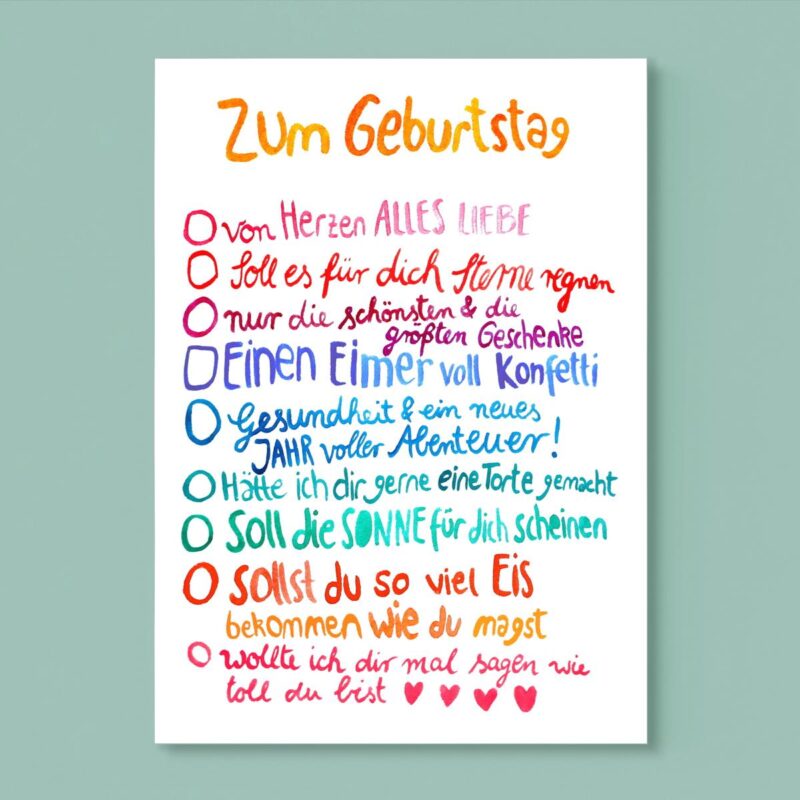 Zum Geburtstag
von Herzen ALLES LIEBE
Soll es für dich Sterne regnen
nur die schönsten & die
größten Geschenke
Einen Eimer voll Konfetti
Gesundheit & ein neues
JAHR voller Abenteuer!
Hätte ich dir gerne eine Torte gemacht
Soll die SONNE für dich scheinen
sollst du so viel Eis
bekommen wie du magst
wollte ich dir mal sagen wie
toll du bist